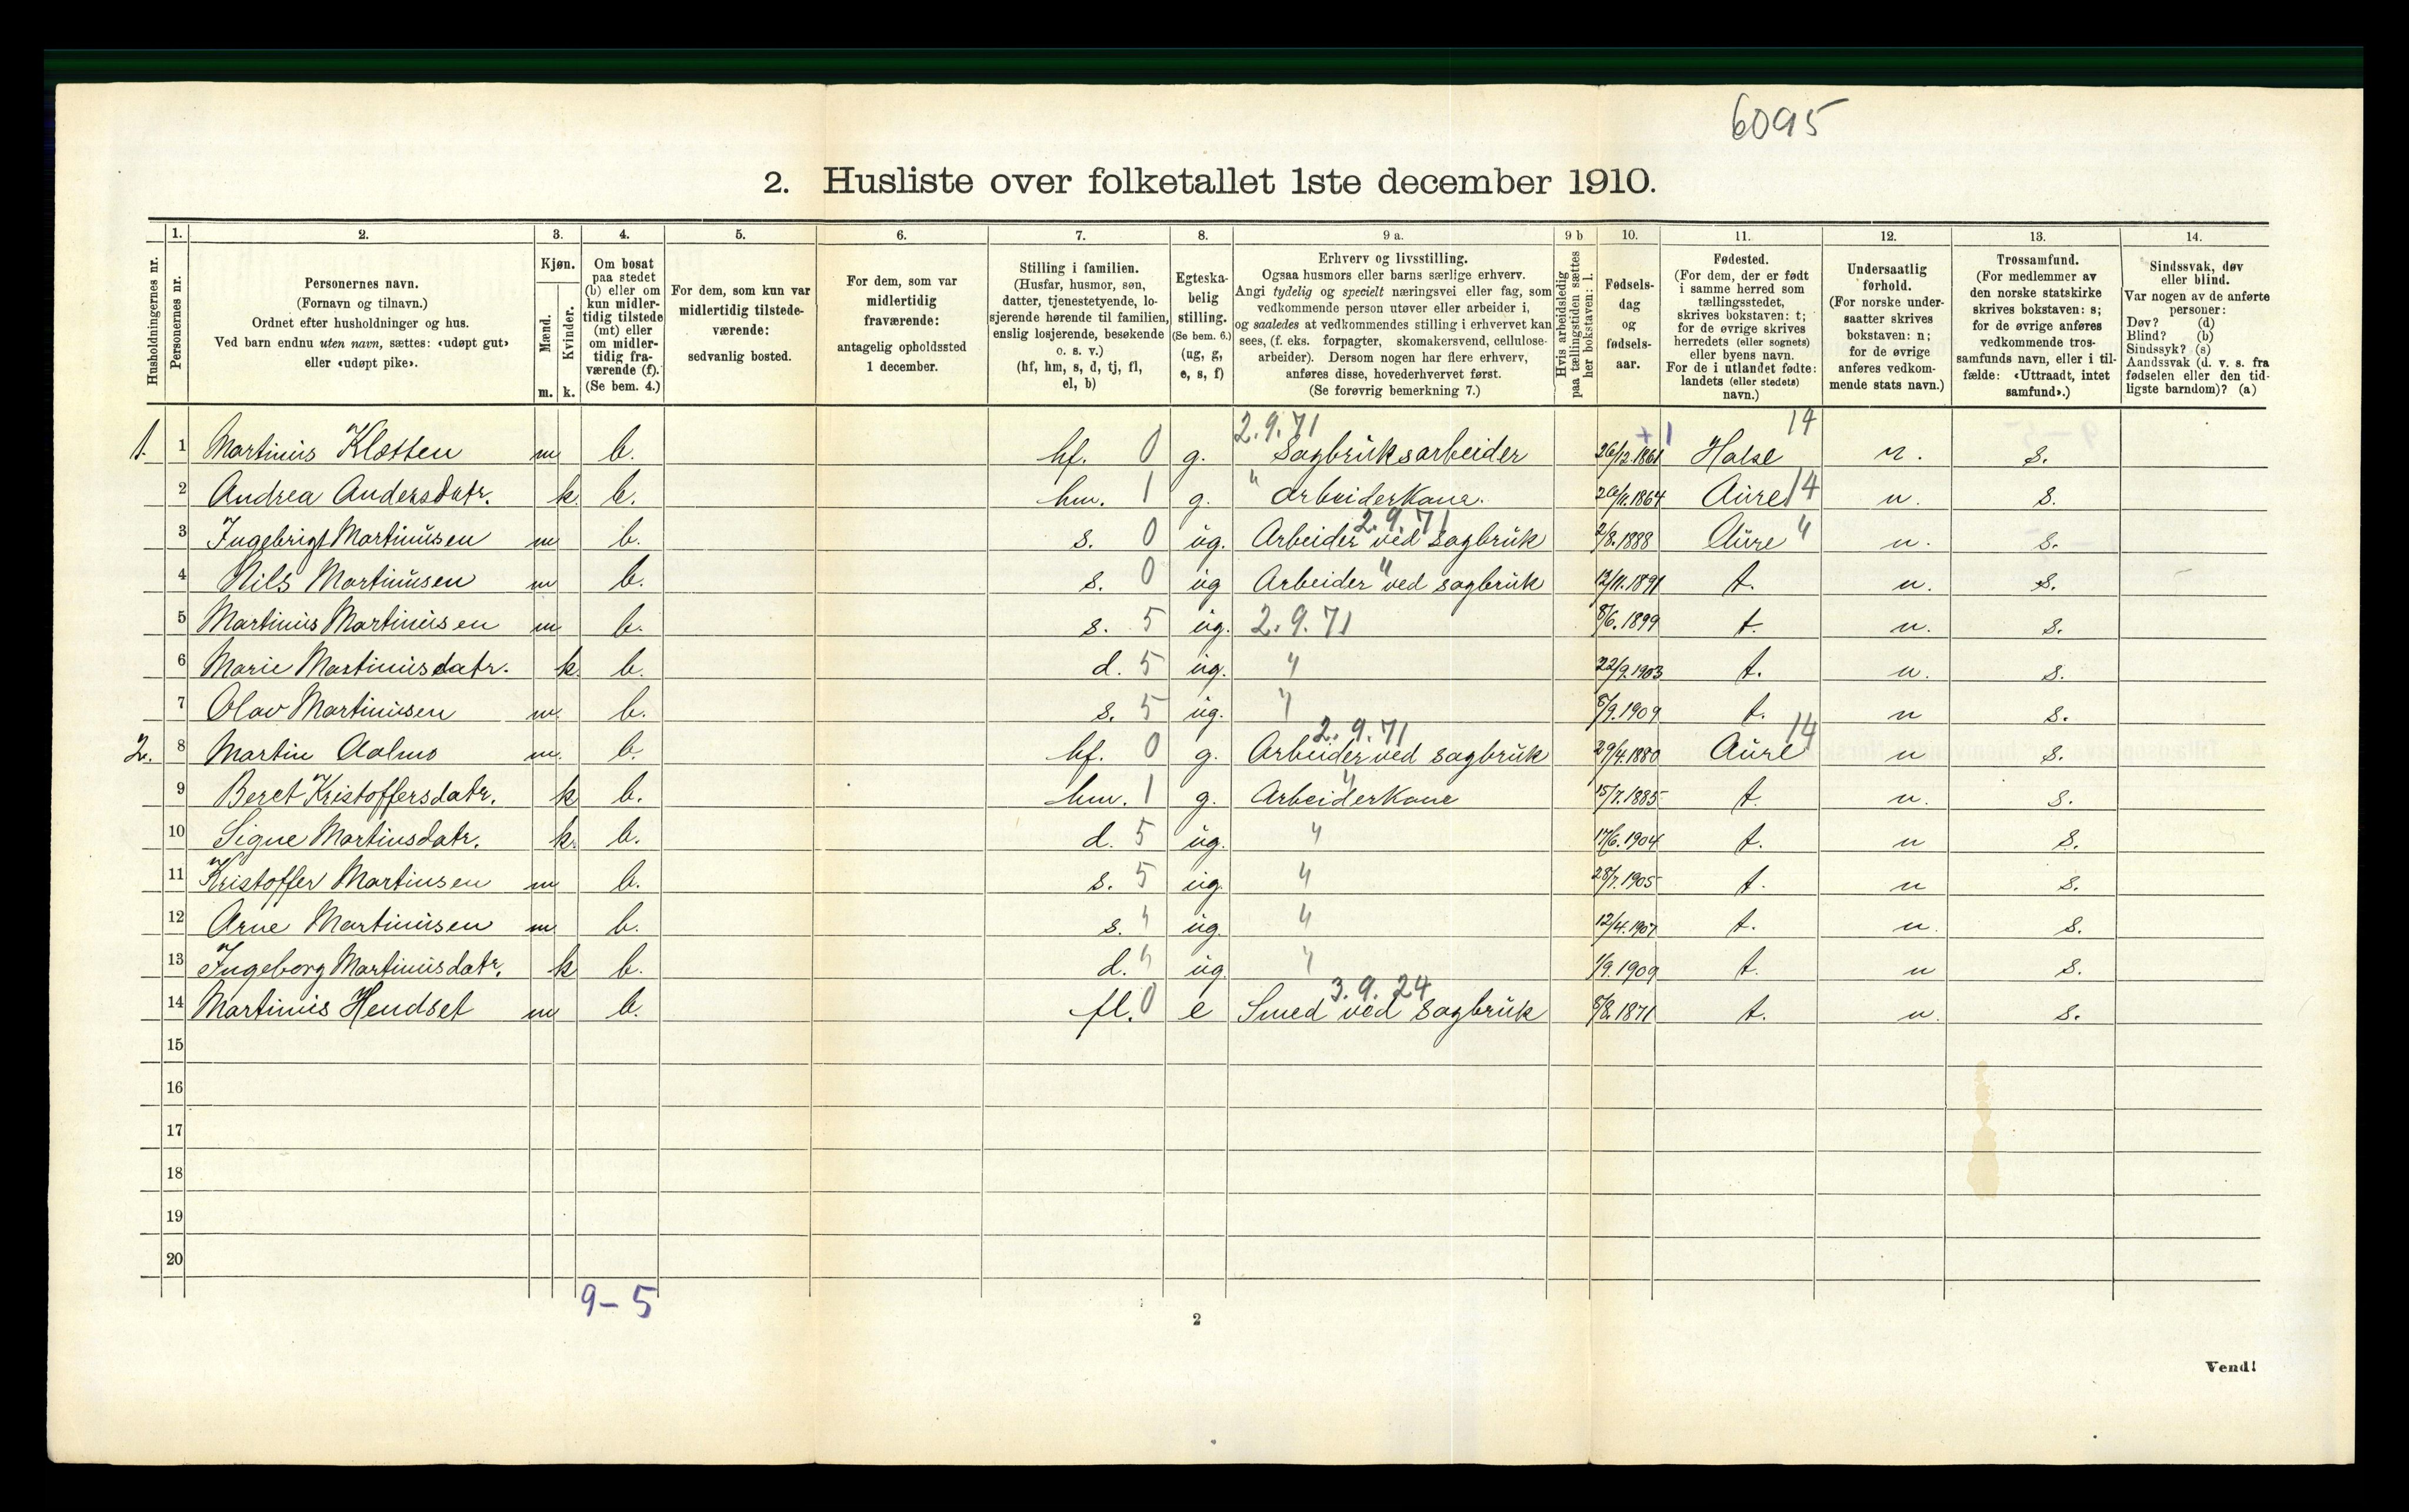 6095
2. Husliste over folketallet 1ste december 1910.
Husholdningernes nr.
1.
Personernes nr.
2.
Personernes navn.
(Fornavn og tilnavn.)
Ordnet efter husholdninger og hus.
Ved barn endnu uten navn, sættes: «udøpt gut»
eller «udøpt pike».
3.
Kjøn.
Mænd.
Kvinder.
m. k.
4.
Om bosat
paa stedet
(b) eller om
kun midler-
tidig tilstede
(mt) eller
om midler-
tidig fra-
værende (f).
(Se bem. 4.)
5.
For dem, som kun var
midlertidig tilstede-
værende:
sedvanlig bosted.
6.
For dem, som var
midlertidig
fraværende:
antagelig opholdssted
1 december.
7.
Stilling i familien.
(Husfar, husmor, søn,
datter, tjenestetyende, lo-
sjerende hørende til familien,
enslig losjerende, besøkende
o. s. v.)
(hf, hm, s, d, tj, fl,
el, b)
8.
Egteska-
belig
stilling.
(Se bem. 6.)
(ug, g,
e, s, f)
9 a.
Erhverv og livsstilling.
Ogsaa husmors eller barns særlige erhverv.
Angi tydelig og specielt næringsvei eller fag, som
vedkommende person utøver eller arbeider i,
og saaledes at vedkommendes stilling i erhvervet kan
sees, (f. eks. forpagter, skomakersvend, cellulose-
arbeider). Dersom nogen har flere erhverv,
anføres disse, hovederhvervet først.
(Se forøvrig bemerkning 7.)
9 b
Hvis arbeidsledig
paa tællingstiden sættes
her bokstaven: l.
10.
Fødsels-
dag
og
fødsels-
aar.
11.
Fødested.
(For dem, der er født
i samme herred som
tællingsstedet,
skrives bokstaven: t;
for de øvrige skrives
herredets (eller sognets)
eller byens navn.
For de i utlandet fødte:
landets (eller stedets)
navn.)
12.
Undersaatlig
forhold.
(For norske under-
saatter skrives
bokstaven: n;
for de øvrige
anføres vedkom-
mende stats navn.)
13.
Trossamfund.
(For medlemmer av
den norske statskirke
skrives bokstaven: s;
for de øvrige anføres
vedkommende tros-
samfunds navn, eller i til-
fælde: «Uttraadt, intet
samfund».)
14.
Sindssvak, døv
eller blind.
Var nogen av de anførte
personer:
Døv? (d)
Blind? (b)
Sindssyk? (s)
Aandssvak (d. v. s. fra
fødselen eller den tid-
ligste barndom)? (a)
2.9.71 + 1 14
1. 1 Martinus Kletten m b. hf. 0 g. Sagbruksarbeider 26/12.1861 Halse n. s.
2 Andrea Andersdatr. k. b. hm. 1 g. " Arbeiderkone. 26/11.1864 Aure 14 n. s.
2.9.71
3 Ingebrigt Martinusen m b. s. 0 ug. Arbeider ved sagbruk 2/8.1888 Aure " n. s.
4 Nils Martinusen m b. s. 0 ug Arbeider " ved sagbruk 12/11.1891 t. n. s.
5 Martinus Martinusen m b. s. 5 ug. 2.9.71 8/6.1899 t. n. s.
6 Marie Martinusdatr. k. b. d. 5 ug. " 22/9.1903 t. n. s.
7 Olav Martinusen m. b. s. 5 ug. " 8/9.1909 t. n s.
2.9.71 14
2. 8 Martin Aalmo m. b. hf. 0 g. Arbeider ved sagbruk 29/4.1880 Aure n s.
9 Beret Kristoffersdatr. k b. hm. 1 g. Arbeiderkone " 15/7.1885 t. n. s.
10 Signe Martinsdatr. k. b. d. 5 ug. " 17/6.1904 t. n s.
11 Kristoffer Martinsen m b. s. 5 ug. " 28/7.1905 t. n s.
12 Arne Martinusen m b. s. " ug. " 12/4.1907 t. n. s.
13 Ingeborg Martinusdatr. k b. d. " ug. " 1/9.1909 t. n s.
3.9.24
14 Martinus Hendset m b. fl. 0 e Smed ved sagbruk 8/8.1871 t. n. s.
15
16
17
18
19
20
9-5
2
Vend!